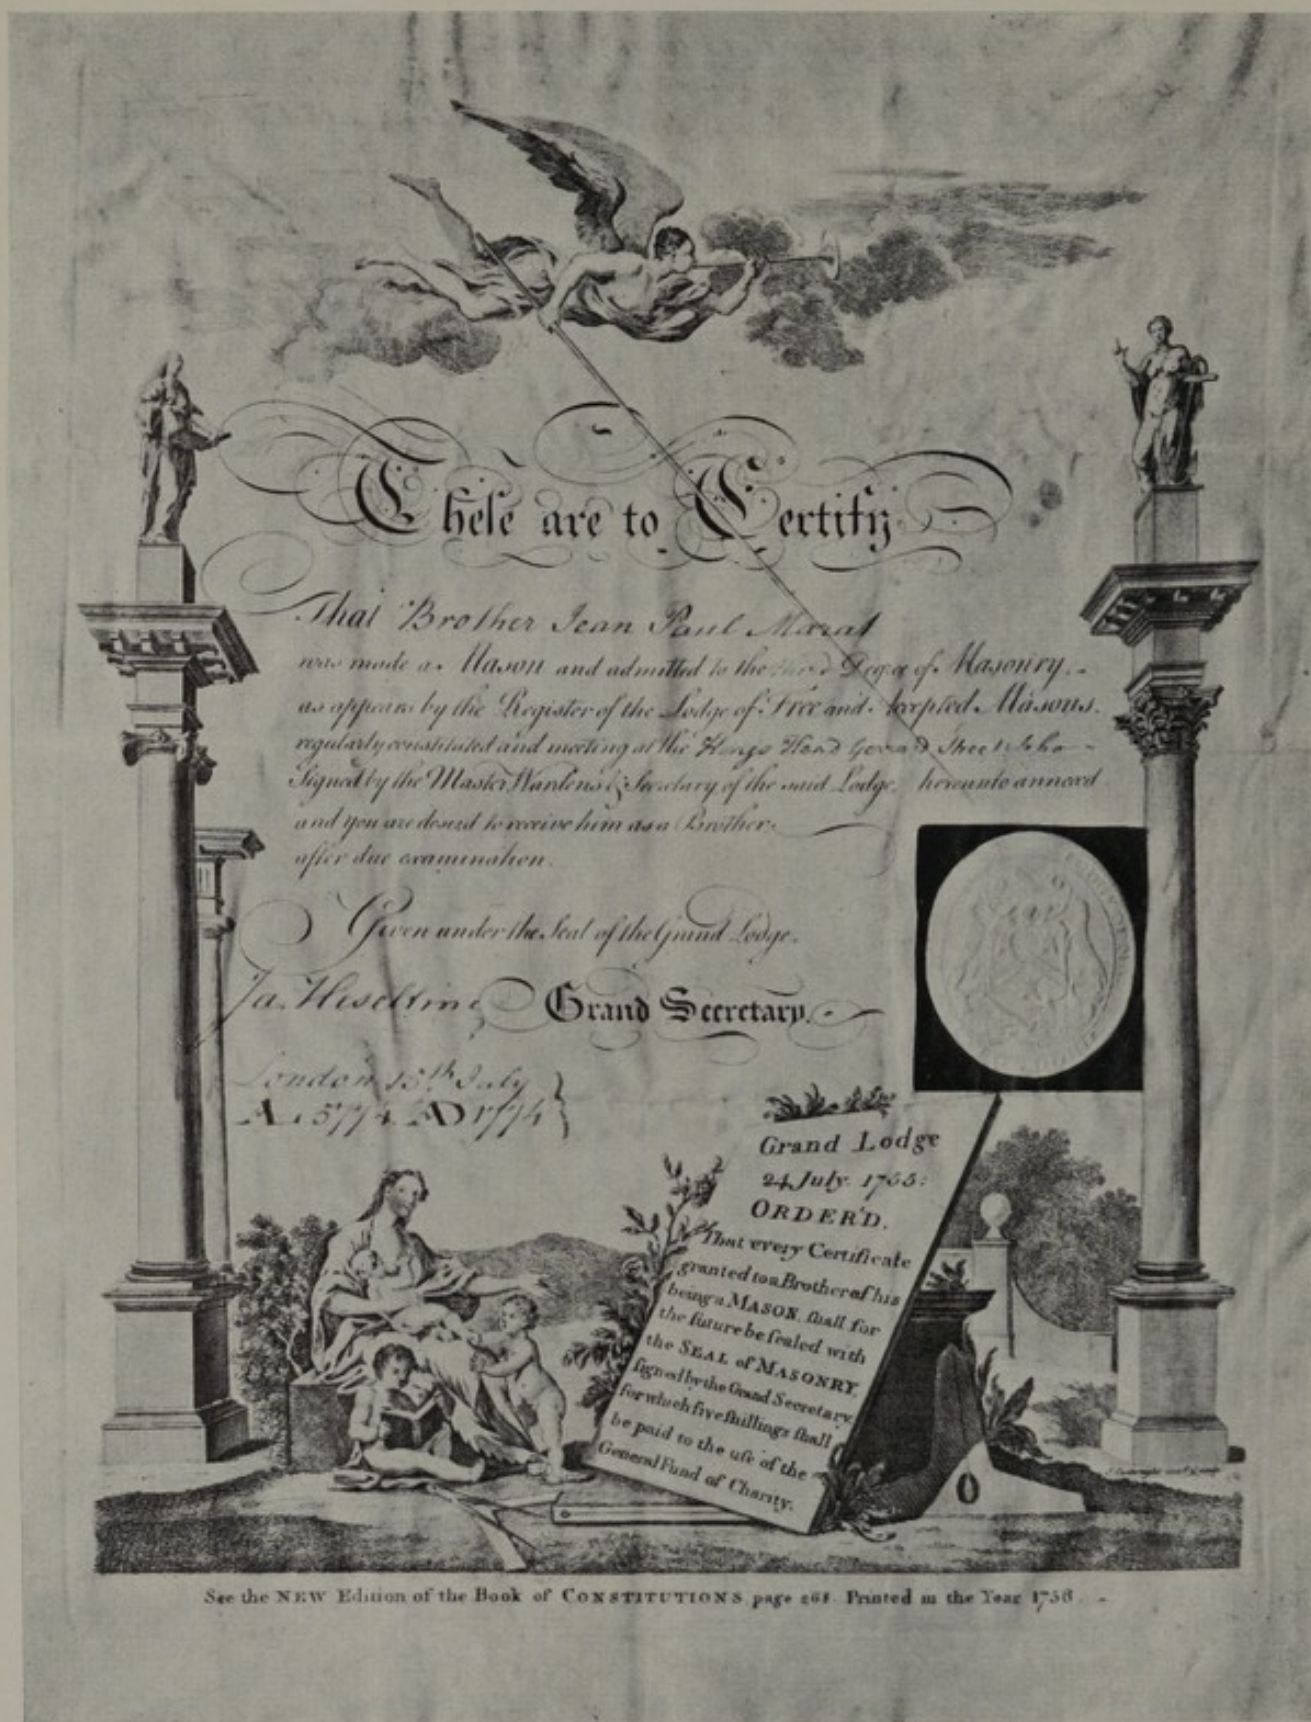 These are to Certify
That Brother Jean Paul Marat
was made a Mason and admitted to the third Degree of Masonry.
as appears by the Register of the Lodge of Free and Accepted Masons.
regularly constituted and meeting at the Kings Head Gerrard Street Soho
Signed by the Master Wardens & Secretary of the said Lodge. hereunto annexd
and you are desired to receive him as a Brother.
after due examination.
Given under the Seal of the Grand Lodge.
Ja. Heseltine Grand Secretary.
London 15th July
AL 5774 AD 1774
Grand Lodge
24 July. 1755:
ORDER'D.
That every Certificate
granted to a Brother of his
being a MASON. shall for
the future be sealed with
the SEAL of MASONRY.
signed by the Grand Secretary.
for which five shillings shall
be paid to the use of the
General Fund of Charity.
See the NEW Edition of the Book of CONSTITUTIONS page Printed in the Year 1756.